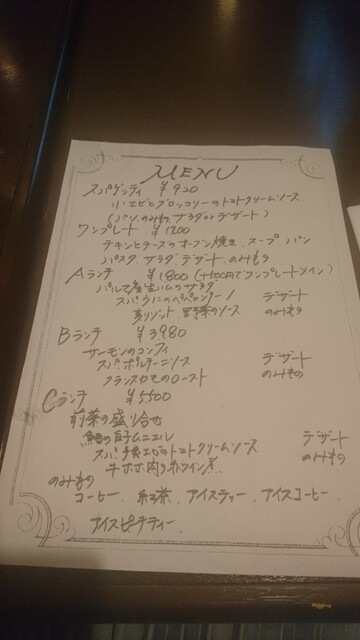 MENU
スパゲッティ ¥920
小エビとブロッコリーのトマトクリームソース
(パン.のみもの サラダorデザート)
ワンプレート ¥1200
チキンとチーズのオーブン焼き スープ パン
パスタ サラダ デザート のみもの
Aランチ ¥1800 (+500円でワンプレートメイン)
パルマ産生ハムのサラダ
スパ うにのペペロンチーノ デザート
リゾット 野菜のソース のみもの
Bランチ ¥3,980
サーモンのコンフィ
スパ.ボルチーニソース デザート
フランスカモのロースト のみもの
Cランチ ¥5,500
前菜の盛り合せ
白子ムニエル デザート
スパ 手長エビのトマトクリームソース のみもの
牛ホホ肉の赤ワイン煮
のみもの
コーヒー. 紅茶. アイスティー. アイスコーヒー.
アイスピーチティー.